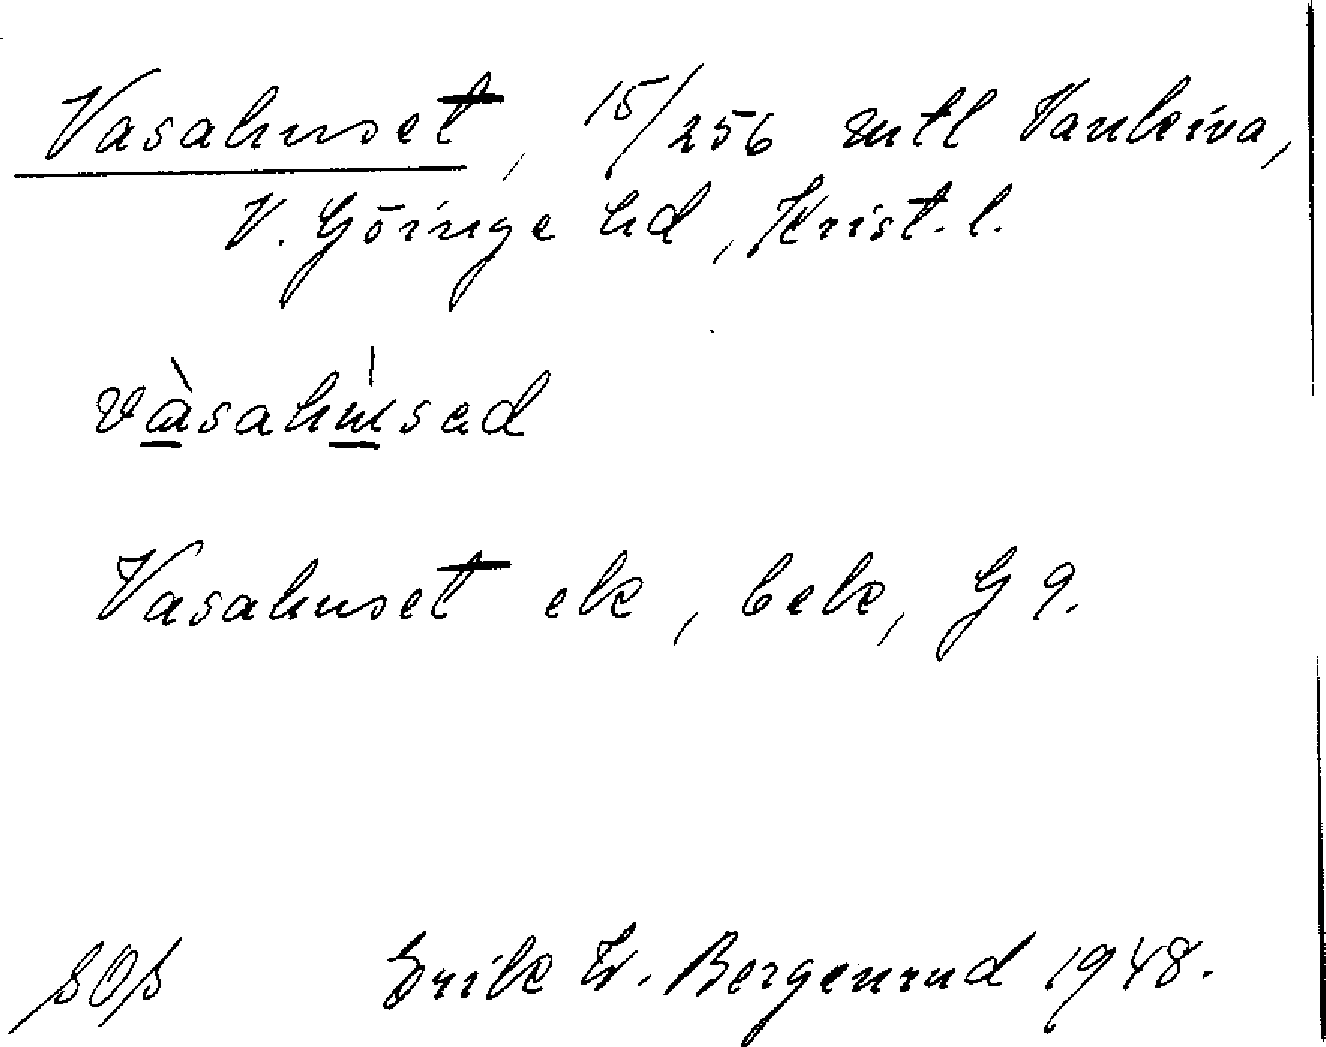 Vasahuset, 15/256 mtl Vankiva,
V. Göinge hd, Krist. l.
vàsahúsad
Vasahuset ek, bek, G 9.
SOS Erik W. Bergenrud 1948.